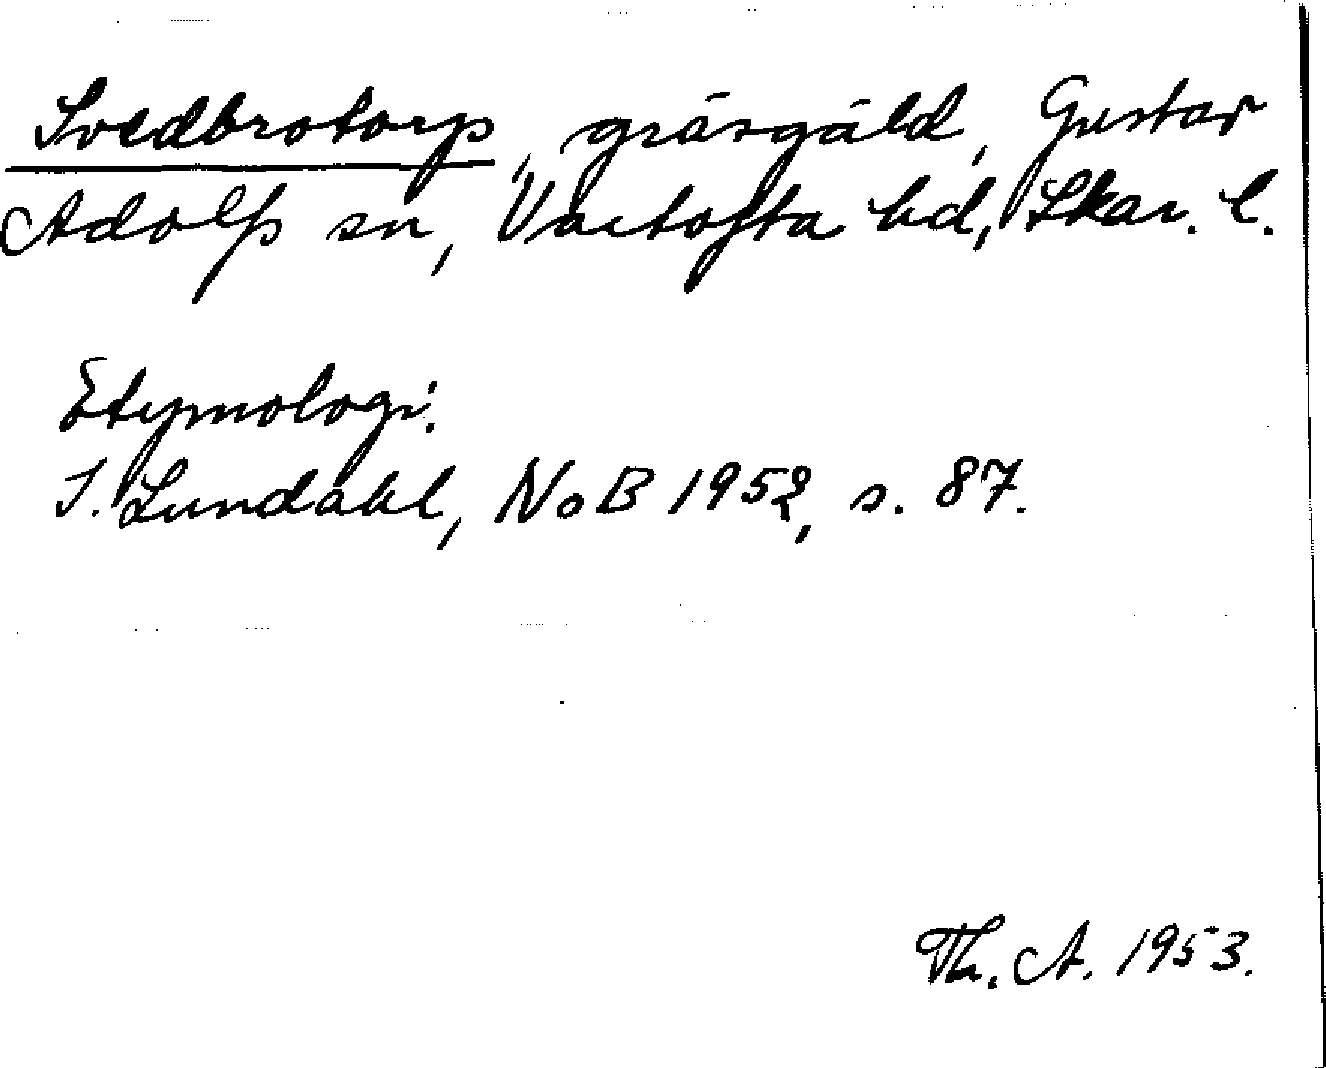 Svedbrotorp, gräsgäld, Gustav
Adolfs sn, Vartofta hd, Skar. l.
Etymologi.
I. Lundahl, NoB 1952, s. 87.
Th. A. 1953.